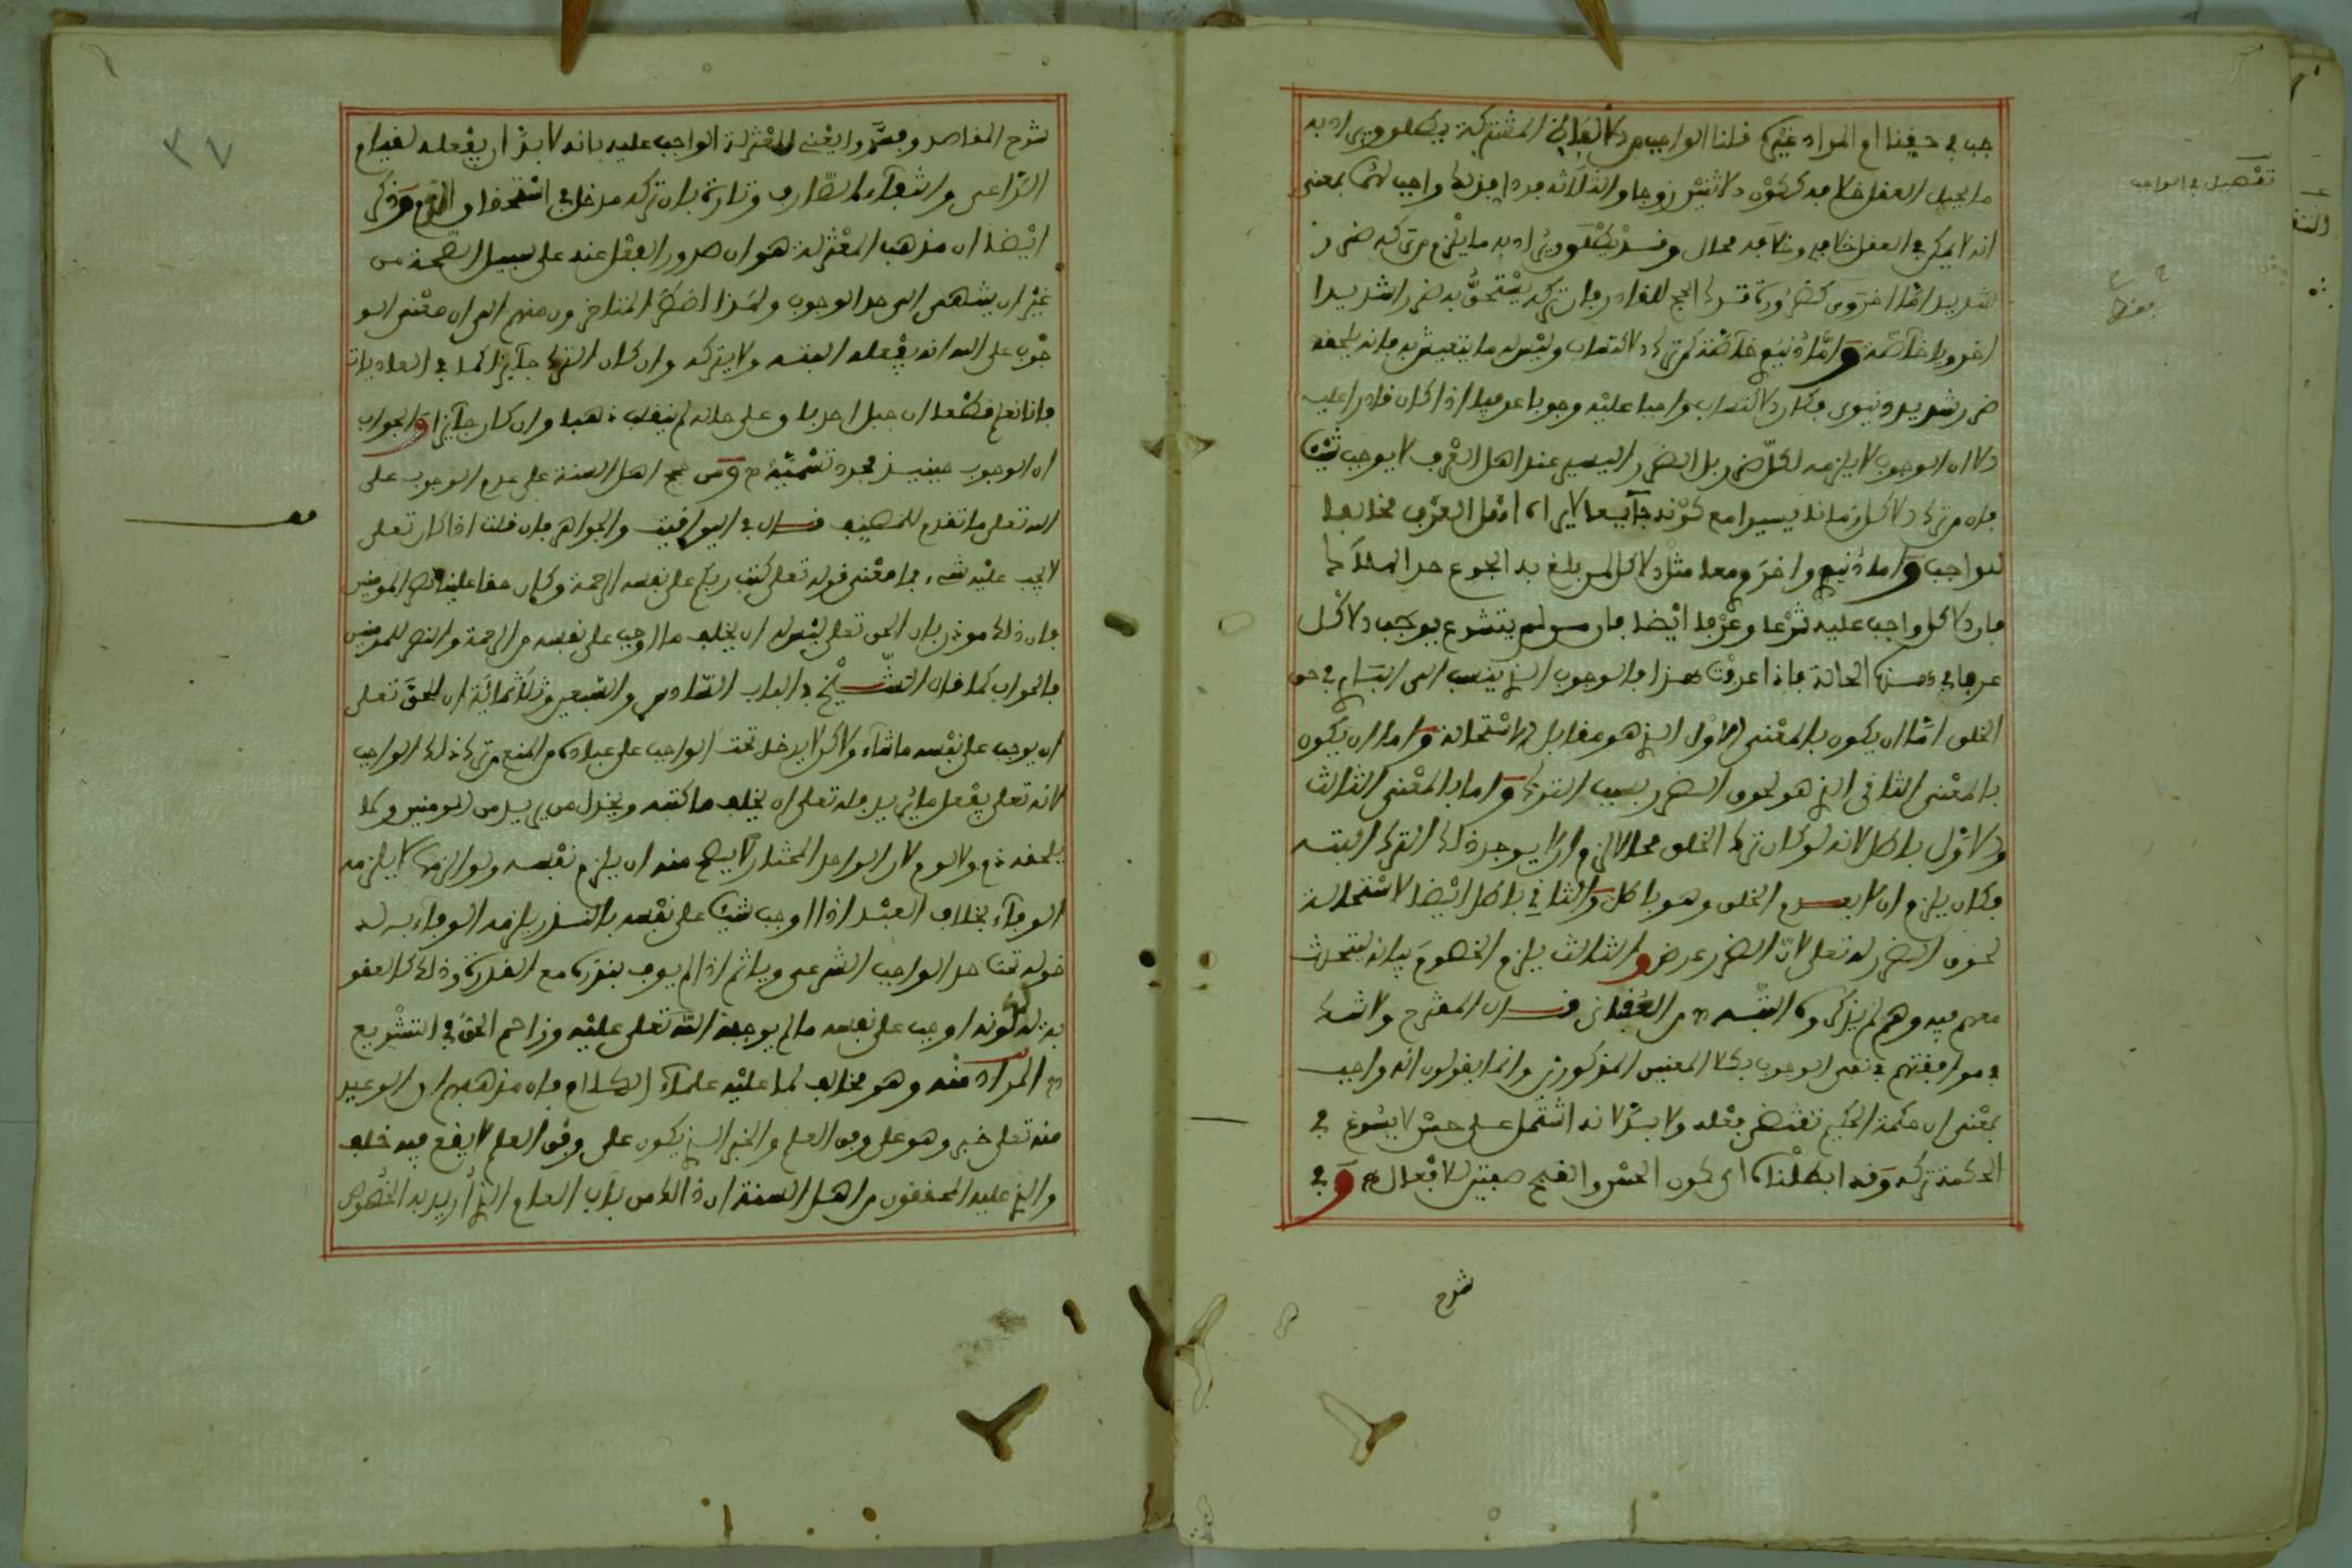 جب في حقنا ام المراد غيره قلنا الواجب من الالفاظ المشتركة يطلق ويراد به
ما يحيل العقل خلافه ككون الاثنين زوجا والثلاثة فردا فذلك واجب بمعنى
انه لا يمكن في العقل خلافه وخلافه محال وقد يطلق ويراد به ما يلزم من تركه ضرر
شديد اما اخروي كضرورة ترك الحج للقادر فان تركه يستحق به ضررا شديدا
اخرويا خاصة واما دنيوي خاصة كترك الاكتساب وليس له ما يتعيش به فانه يلحقه
ضرر شديد دنيوي فكان الاكتساب واجبا عليه وجوبا عرفيا اذا كان قادرا عليه
الا ان الوجوب لا يلزمه لكل ضرر بل الضرر اليسير عند اهل العرف لا يوجب شيئا
فان من ترك الاكل زمانا يسيرا مع كونه جايعا لا يراه اهل العرف مخالفا
للواجب واما دنيوي واخروي معا مثل الاكل لمن بلغ به الجوع حد الهلاك
فان الاكل واجب عليه شرعا وعرفا ايضا فان من لم يتشرع يوجب الاكل
عرفا في هذه الحالة فاذا عرفت هذا فالوجوب الذي ينسب الى الباري في حق
الخلق اما ان يكون بالمعنى الاول الذي هو مقابل الاستحالة واما ان يكون
بالمعنى الثاني الذي هو لحوق الضرر بسبب الترك واما بالمعنى الثالث
والاول باطل لانه لو كان ترك الخلق محالا لزم ان لا يوجد ذلك الترك البتة
فكان يلزم ان لا يعدم الخلق وهو باطل والثاني باطل ايضا لاستحالة
لحوق الضرر له تعلى لان الضرر عرض والثالث يلزم الخصوم بيانه ليتحدث
معهم فيه وهم لم يذكروه انتهى من العقباني قال المقترح ولا شك
في موافقتهم في نفي الوجوب بكلا المعنيين المذكورين وانما يقولون انه واجب
بمعنى ان حكمة الحكيم تقتضي فعله ولا بد لانه اشتمل على حسن لا يسوغ في
الحكمة تركه وقد ابطلناه اي كون الحسن والقبح صفتين للافعال هـ وفي
شرح
تفصيل في الواجب
شرح المقاصد وفسروا يعني المعتزلة الواجب عليه بانه لا بد ان يفعله لقيام
الداعي وانتفاء الصارف وتارة بان تركه مدخل في استحقاق الذم وذكر
ايضا ان مذهب المعتزلة هو ان صدور الفعل عنه على سبيل الصحة من
غير ان ينتهي الى حد الوجوب ولهذا اضطر المتاخرون منهم الى ان معنى الو
جوب على الله انه يفعله البتة ولا يتركه وان كان الترك جايزا كما في العاديات
فانا نعلم قطعا ان جبل احد باق على حاله لم ينقلب ذهبا وان كان جايزا والجواب
ان الوجوب حينيذ مجرد تسمية هـ ومن حجج اهل السنة على عدم الوجوب على
الله تعلى ما تقدم للمصنف قال في اليواقيت والجواهر فان قلت اذا كان تعلى
لا يجب عليه شيء فما معنى قوله تعلى كتب ربكم على نفسه الرحمة وكان حقا علينا نصر المومنين
فان ذلك موذن بان الحق تعلى ليس له ان يخلف ما اوجب على نفسه من الرحمة والنصر للمومنين
فالجواب كما قال الشيخ في الباب السادس والتسعين وثلاثمائة ان الحق تعلى
ان يوجب على نفسه ما شاء ولاكن لا يدخل تحت الواجب على عباده من المنع من ترك ذلك الواجب
لانه تعلى يفعل ما يريد فله تعلى ان يخلف ما كتبه ويخذل من يريد من المومنين وكما
يلحقه ذم ولا لوم لان الواحد المختار لا يصح منه ان يلزم نفسه ولو الزمها لا يلزمه
الوفاء بخلاف العبد اذا اوجب شيئا على نفسه بالنذر يلزمه الوفاء به لد
خوله تحت حد الواجب الشرعي وياثم اذا لم يوف بنذره مع القدرة وذلك كالعقو
بة له لكونه اوجب على نفسه ما لم يوجبه الله تعلى عليه وزاحم الحق في التشريع
هـ المراد منه وهو مخالف لما عليه علماء الكلام فان مذهبهم ان الوعيد
منه تعلى خبر وهو على وفق العلم والخبر الذي يكون على وفق العلم لا يقع فيه خلف
والذي عليه المحققون من اهل السنة ان ذالك من باب العام الذي اريد به الخصوص
٣٧